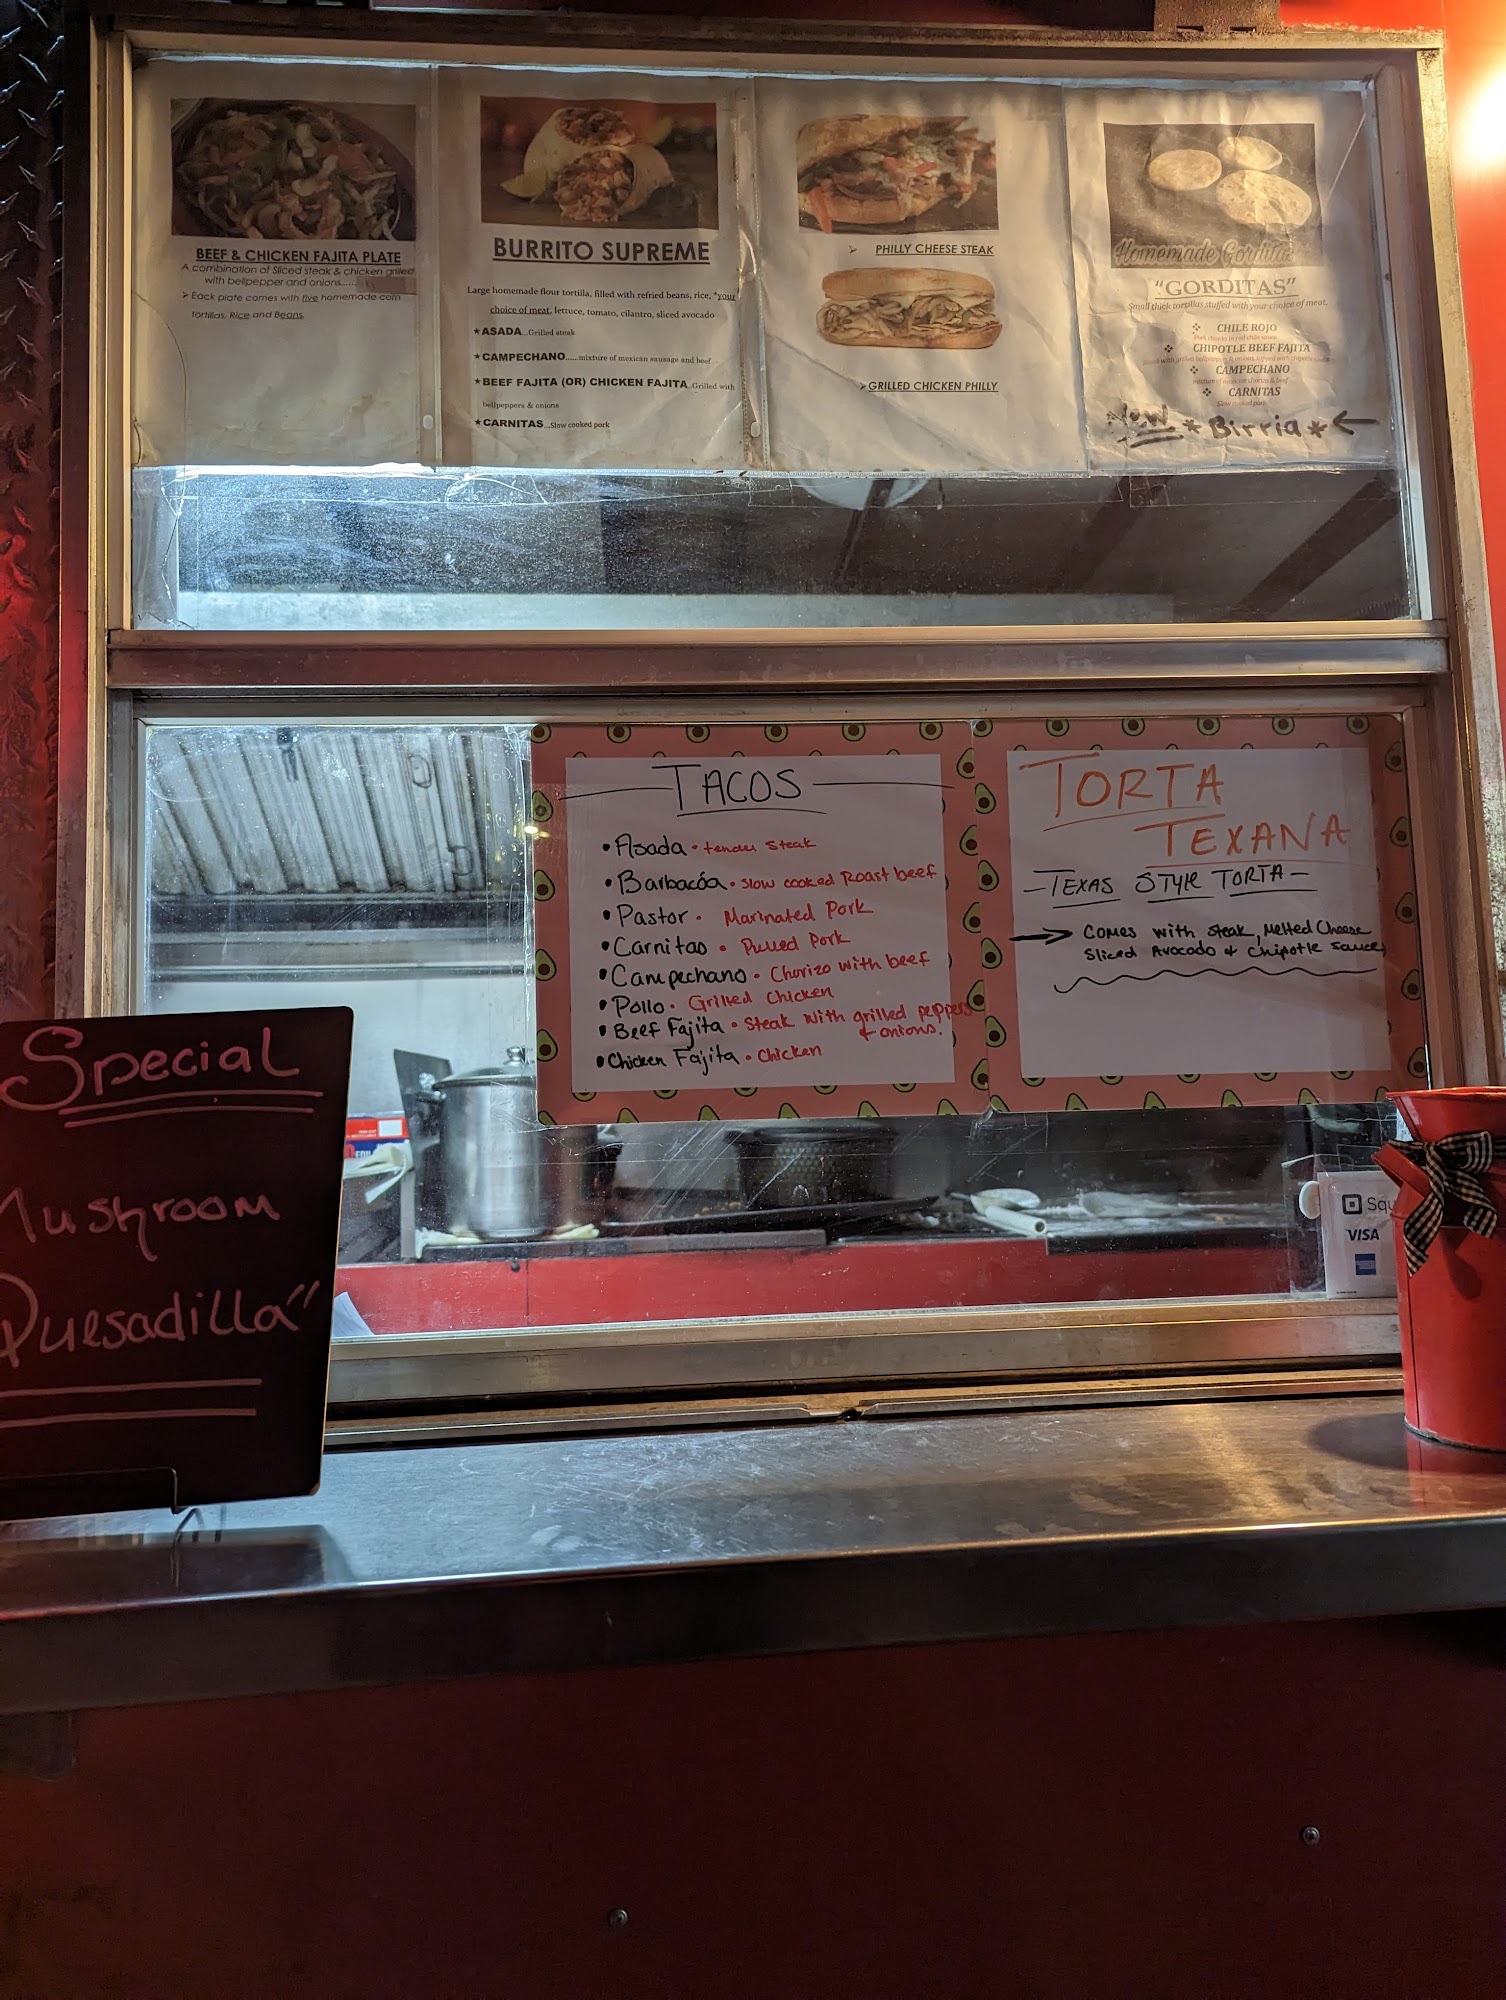 BEEF & CHICKEN FAJITA PLATE
A combination of Sliced steak & chicken grilled
with bellpepper and onions......
➢ Each plate comes with five homemade corn
tortillas, Rice and Beans.
BURRITO SUPREME
Large homemade flour tortilla, filled with refried beans, rice, *your
choice of meat, lettuce, tomato, cilantro, sliced avocado
★ASADA...Grilled steak
★CAMPECHANO......mixture of mexican sausage and beef
★BEEF FAJITA (OR) CHICKEN FAJITA..Grilled with
bellpeppers & onions
★CARNITAS...Slow cooked pork
➢ PHILLY CHEESE STEAK
➢GRILLED CHICKEN PHILLY
Homemade Gorditas
"GORDITAS"
Small thick tortillas stuffed with your choice of meat.
❖ CHILE ROJO
Pork chunks in red chile sauce
❖ CHIPOTLE BEEF FAJITA
❖ CAMPECHANO
mixture of mexican chorizo & beef
❖ CARNITAS
Slow cooked pork
Now *Birria* ←
TACOS
• Asada • tender steak
• Barbacóa • slow cooked Roast beef
• Pastor • Marinated Pork
• Carnitas • Pulled Pork
• Campechano • Chorizo with beef
• Pollo • Grilled Chicken
• Beef Fajita • Steak with grilled peppers
& onions!
• Chicken Fajita • Chicken
TORTA
TEXANA
- TEXAS STYLE TORTA -
→ Comes with steak, Melted Cheese
Sliced Avocado & Chipotle sauce
Special
Mushroom
Quesadilla"
Squ
VISA